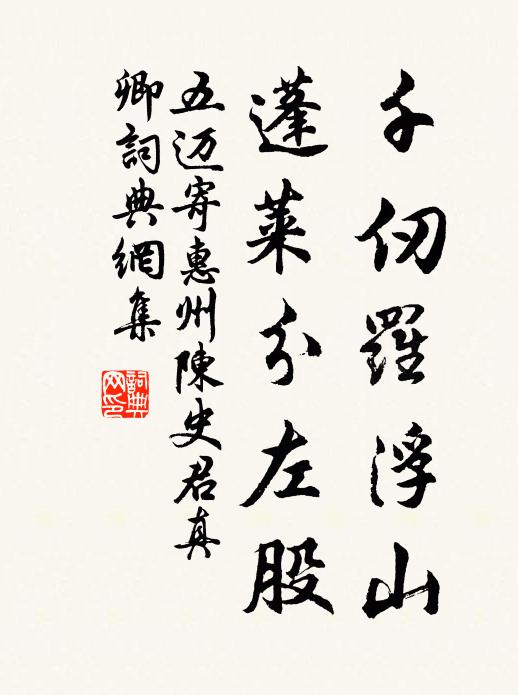 千仞羅浮山
蓬萊分左股
五迈寄惠州陳史君真
卿詞典網集
詞典
网印